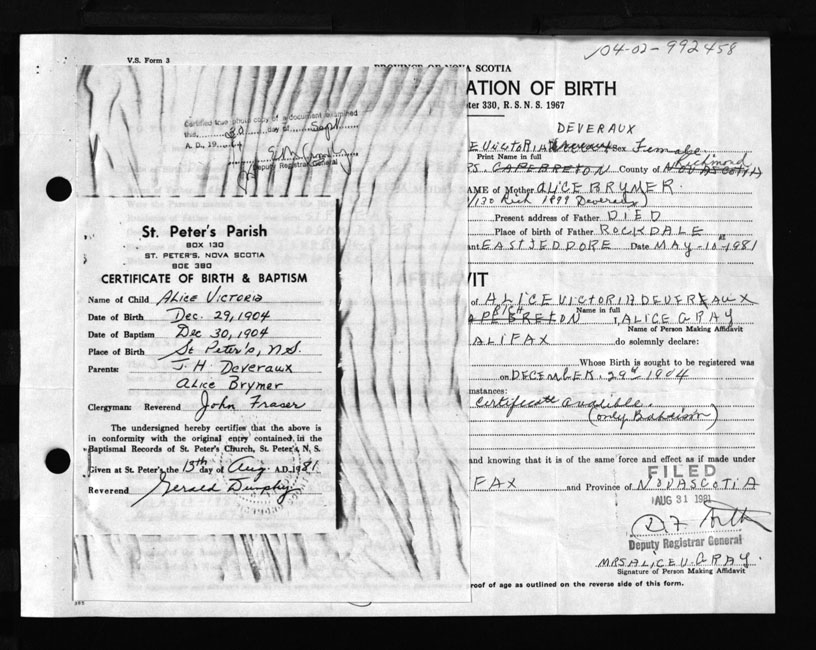 04-02-992458
V.S. Form 3
PROVINCE OF NOVA SCOTIA
ATION OF BIRTH
ter 330, R. S. N. S. 1967
Certified true photo copy of a document examined
this 30 day of Sept
A. D., 19
Deputy Registrar General
DEVERAUX
E VICTORIA Sex Female
Print Name in full
Richmond
CAPE BRETON County of NOVA SCOTIA
AME of Mother ALICE BRYMER
Rich 1899 Deveraux)
Present address of Father DIED
Place of birth of Father ROCKDALE
at EAST JEDDORE Date MAY-10-1981
St. Peter's Parish
BOX 130
ST. PETER'S, NOVA SCOTIA
BOE 3B0
CERTIFICATE OF BIRTH & BAPTISM
Name of Child Alice Victoria
Date of Birth Dec. 29, 1904
Date of Baptism Dec 30, 1904
Place of Birth St Peter's, N.S.
Parents: J. H. Deveraux
Alice Brymer
Clergyman: Reverend John Fraser
The undersigned hereby certifies that the above is
in conformity with the original entry contained in the
Baptismal Records of St. Peter's Church, St. Peter's, N. S.
Given at St. Peter's the 13th day of Aug. A.D. 1981
Reverend Gerald Dunphy
VIT
of ALICE VICTORIA DEVERAUX
RICH Name in full
APE BRETON I, ALICE GRAY
Name of Person Making Affidavit
ALIFAX do solemnly declare:
Whose Birth is sought to be registered was
on DECEMBER. 29th 1904
mstances:
certificate avalible.
(only Babtism)
and knowing that it is of the same force and effect as if made under
FAX and Province of NOVA SCOTIA
FILED
AUG 31 1981
Deputy Registrar General
MRS ALICE V. GRAY.
Signature of Person Making Affidavit
roof of age as outlined on the reverse side of this form.